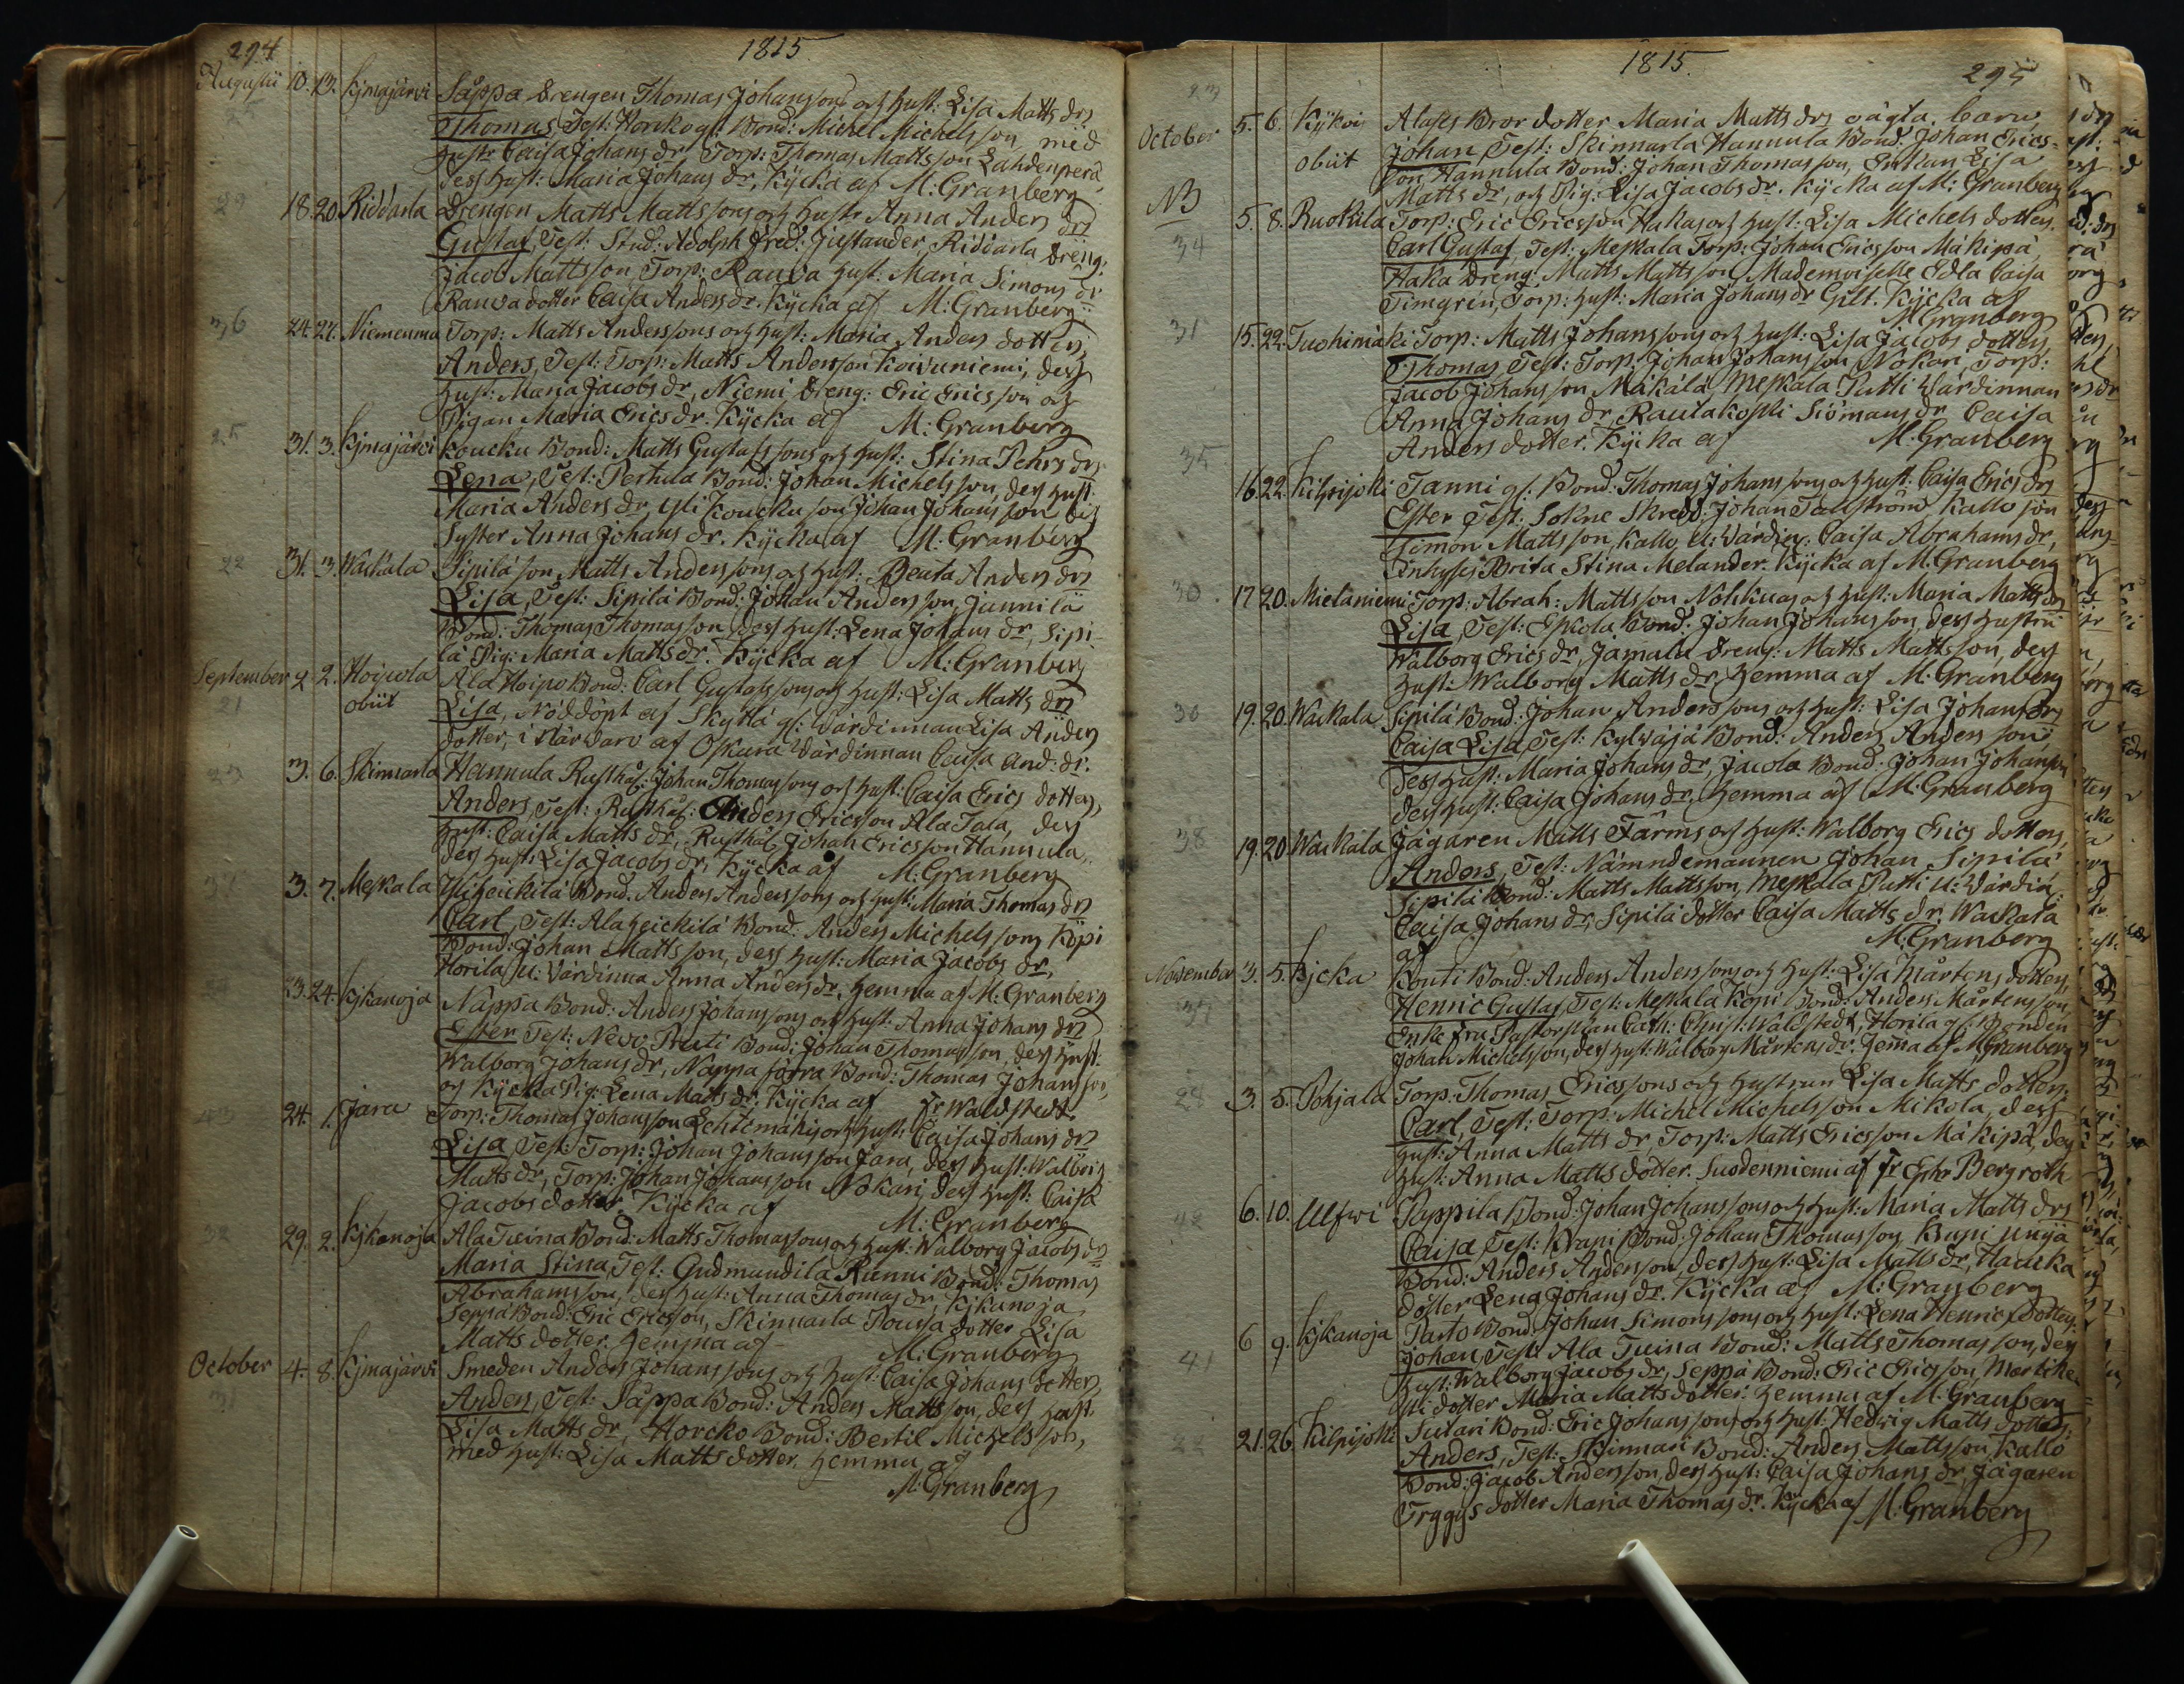 294
1815
Augusti 10. 13. Kjmajärvi Säppä Drengen Thomas Johanssons och Hust: Lisa Matts drs
25 Thomas, Test: Horckogl: Bond: Michel Michelsson, med
Hustr Caisa Johans dr Torp: Thomas Mattsson Lahdenperä
dess Hust: Maria Johans dr, Kycka af M: Granberg
29 18. 20. Riddarla Drengen Matts Mattssons och Hustr Anna Anders drs
Gustaf, Test: Stud: Adolph Fred: Justander, Riddarla Dreng:
Jacob Mattsson Torp: Rauva Hust: Maria Simons dr
Rauva dotter Caisa Anders dr. Kycka af M: Granberg
36 24. 27. Niemenmaa Torp: Matts Anderssons och Hust: Maria Anders dotters
Anders, Test: Torp: Matts Andersson Koivuniemi, dess
Hust: Maria Jacobs dr, Niemi Dreng: Eric Ericsson och
Pigan Maria Erics dr. Kycka af M: Granberg
25 31. 3. Kjmajärvi Koucku Bond: Matts Gustafssons och Hust: Stina Pehrs drs
Lena, Test: Perhula Bond: Johan Michelsson, dess Hust:
Maria Anders dr, Yli Koucku son Johan Johansson och
Syster Anna Johans dr. Kycka af M: Granberg
22 31. 3. Wackala Sipilä son Matts Anderssons och Hust: Beata Anders drs
Lisa, Test: Sipilä Bond: Johan Andersson, Jannila
Bond: Thomas Thomasson dess Hust: Lena Johans dr, Sipi-
lä Pig: Maria Matts dr. Kycka af M: Granberg
September 2. 2. Hoijwola Ala Hoipo Bond: Carl Gustafssons och Hust: Lisa Matts drs
21 obiit Lisa, Nöddöpt af Skyttä gl: Värdinnan Lisa Anders
dotter, i närvaro af Oskura Värdinnan Caisa And: dr.
3. 6. Skinnarla Hannula Rusthål: Johan Thomassons och Hust: Caisa Erics dotters,
Anders, Test: Rusthål: Anders Ericsson Ala Tara, dess
Hust: Caisa Matts dr, Rusthål: Johan Ericsson Hannula,
dess Hust: Lisa Jacobs dr, Kycka af M: Granberg
3. 7. Meskala Yliheickilä Bond: Anders Anderssons och Hust: Maria Thomas drs
Carl, Test: Alaheickilä Bond: Anders Michelssons Köpi
Bond: Johan Mattsson, dess Hust: Maria Jacobs dr,
Horila U: Värdinna Anna Anders dr. Hemma af M: Granberg
23. 24. Kjkanoja Näppä Bond: Anders Johanssons och Hust: Anna Johans drs
Ester, Test: Nevo Pruti Bond: Johan Thomasson, dess Hust:
Walborg Johans dr, Näppä förra Bond: Thomas Johansson,
och Kycka Pig: Lena Matts dr. Kycka af Fr Waldstedt.
43 24. 1. Jara Torp: Thomas Johansson Lehtemäkis och Hust: Caisa Johans drs
Lisa, Test: Torp: Johan Johansson Jara, dess Hust: Walborg
Matts dr, Torp: Johan Johansson Nokari, dess Hust: Caisa
Jacobs dotter. Kycka af M: Granberg
32 29. 2. Kjkanoja Ala Tuina Bond: Matts Thomassons och Hust: Walborg Jacobs drs
Maria Stina, Test: Gudmundila Runni Bond: Thomas
Abrahamsson, dess Hust: Anna Thomas dr, Kjkanoja
Seppä Bond: Eric Ericsson, Skinnarla Rousa dotter Lisa
Matts dotter. Hemma af M: Granberg
October 4. 8. Kjmajärvi Smeden Anders Johanssons och Hust: Caisa Johans dotters
Anders, Test: Säppä Bond: Anders Mattsson, dess Hust:
Lisa Matts dr, Horcko Bond: Bertil Michelsson,
med Hust: Lisa Matts dotter, Hemma af
M: Granberg
1815.
295
October 5. 6. Kykois Alasis Bror dotter Maria Matts drs oägta barn
obiit Johan, Test: Skinnarla Hannula Bond: Johan Erics-
son Hannula Bond: Johan Thomasson, Enkan Lisa
Matts dr, och Pig: Lisa Jacobs dr. Kycka af M: Granberg
NB
34 5. 8. Ruokila Torp: Eric Ericsson Hakas och Hust: Lisa Michels dotters
Carl Gustaf, Test: Meskala Torp: Johan Ericsson Mäkipä,
Haka Dreng: Matts Mattsson Mademoiselle Edla Caisa
Timgren, Torp: Hust: Maria Johans dr Gilt. Kycka af
M: Granberg
31 15. 22. Tuohimäki Torp: Matts Johanssons och Hust: Lisa Jacobs dotters
Thomas, Test: Torp: Johan Johansson Nokari, Torp:
Jacob Johansson Mäkälä, Meskala Putti Värdinnan
Anna Johans dr, Rautakoski Siömans dr Caisa
Anders dotter. Kycka af M: Granberg
35 16. 22. Kilpijoki Tanni gl: Bond: Thomas Johanssons och Hust: Caisa Erics drs
Ester, Test: Sokne Skredd: Johan Tallström, Kallo son
Simon Mattsson, Kallo U: Värdin: Caisa Abrahams dr,
Inhyses Brita Stina Melander. Kycka af M: Granberg
30. 17. 20. Mielaniemi Torp: Abrah: Mattsson Nohkuas och Hust: Maria Matts drs
Lisa, Test: Eskola Bond: Johan Johansson, dess Hustru
Walborg Erics dr, Jamala Dreng: Matts Mattsson, dess
Hust: Walborg Matts dr, Hemma af M: Granberg
30 19. 20. Wackala Sipilä Bond: Johan Anderssons och Hust: Lisa Johans drs
Caisa Lisa, Test: Kylväjä Bond: Anders Andersson,
dess Hust: Maria Johans dr, Jacola Bond: Johan Johansson
dess Hust: Caisa Johans dr, Hemma af M: Granberg
38 19. 20. Wackala Jägaren Matts Färms och Hust: Walborg Erics dotters,
Anders, Test: Nämndemannen Johan Sipilä,
Sipilä Bond: Matts Mattsson, Meskala Putti U: Värdin:
Caisa Johans dr, Sipilä dotter Caisa Matts dr. Wackala
af M: Granberg
November 3. 5. Kycka Kouti Bond: Anders Anderssons och Hust: Lisa Mårtens dotters,
37 Henric Gustaf, Test: Meskala Köpi Bond: Anders Mårtensson,
Enkefru Pastorskan Cath: Christ: Waldstedt, Horila gl: Bonden
Johan Michelsson, dess Hust: Walborg Mårtens dr. Hemma af M: Granberg
28 3. 5. Pohjala Torp: Thomas Ericssons och Hustrun Lisa Matts dotters
Carl, Test: Torp: Michel Michelsson Mikola, dess
Hust: Anna Matts dr, Torp: Matts Ericsson Mäkipä, dess
Hust: Anna Matts dotter. Suodenniemi af Fr Ephr Bergroth
42 6. 10. Ulfwi Pappila Bond: Johan Johanssons och Hust: Maria Matts drs
Caisa, Test: Krapi Bond: Johan Thomasson, Kupi unga
Bond: Anders Andersson, dess Hust: Lisa Matts dr, Haucka
dotter Lena Johans dr. Kycka af M: Granberg
41 6 9. Kjkanoja Parto Bond: Johan Simonssons och Hust: Lena Henrics dotters
Johan, Test: Ala Tuina Bond: Matts Thomasson, dess
Hust: Walborg Jacobs dr, Seppä Bond: Eric Ericsson, Martike
Uti dotter Maria Matts dotter. Hemma af M: Granberg
22 21. 26. Kilpijoki Sutari Bond: Eric Johanssons och Hust: Hedwig Matts dotters
Anders, Test: Skinnari Bond: Anders Mattsson, Kallo
Bond: Jacob Andersson, dess Hust: Caisa Johans dr, Jägaren
Tryggs dotter Maria Thomas dr. Kycka af M: Granberg